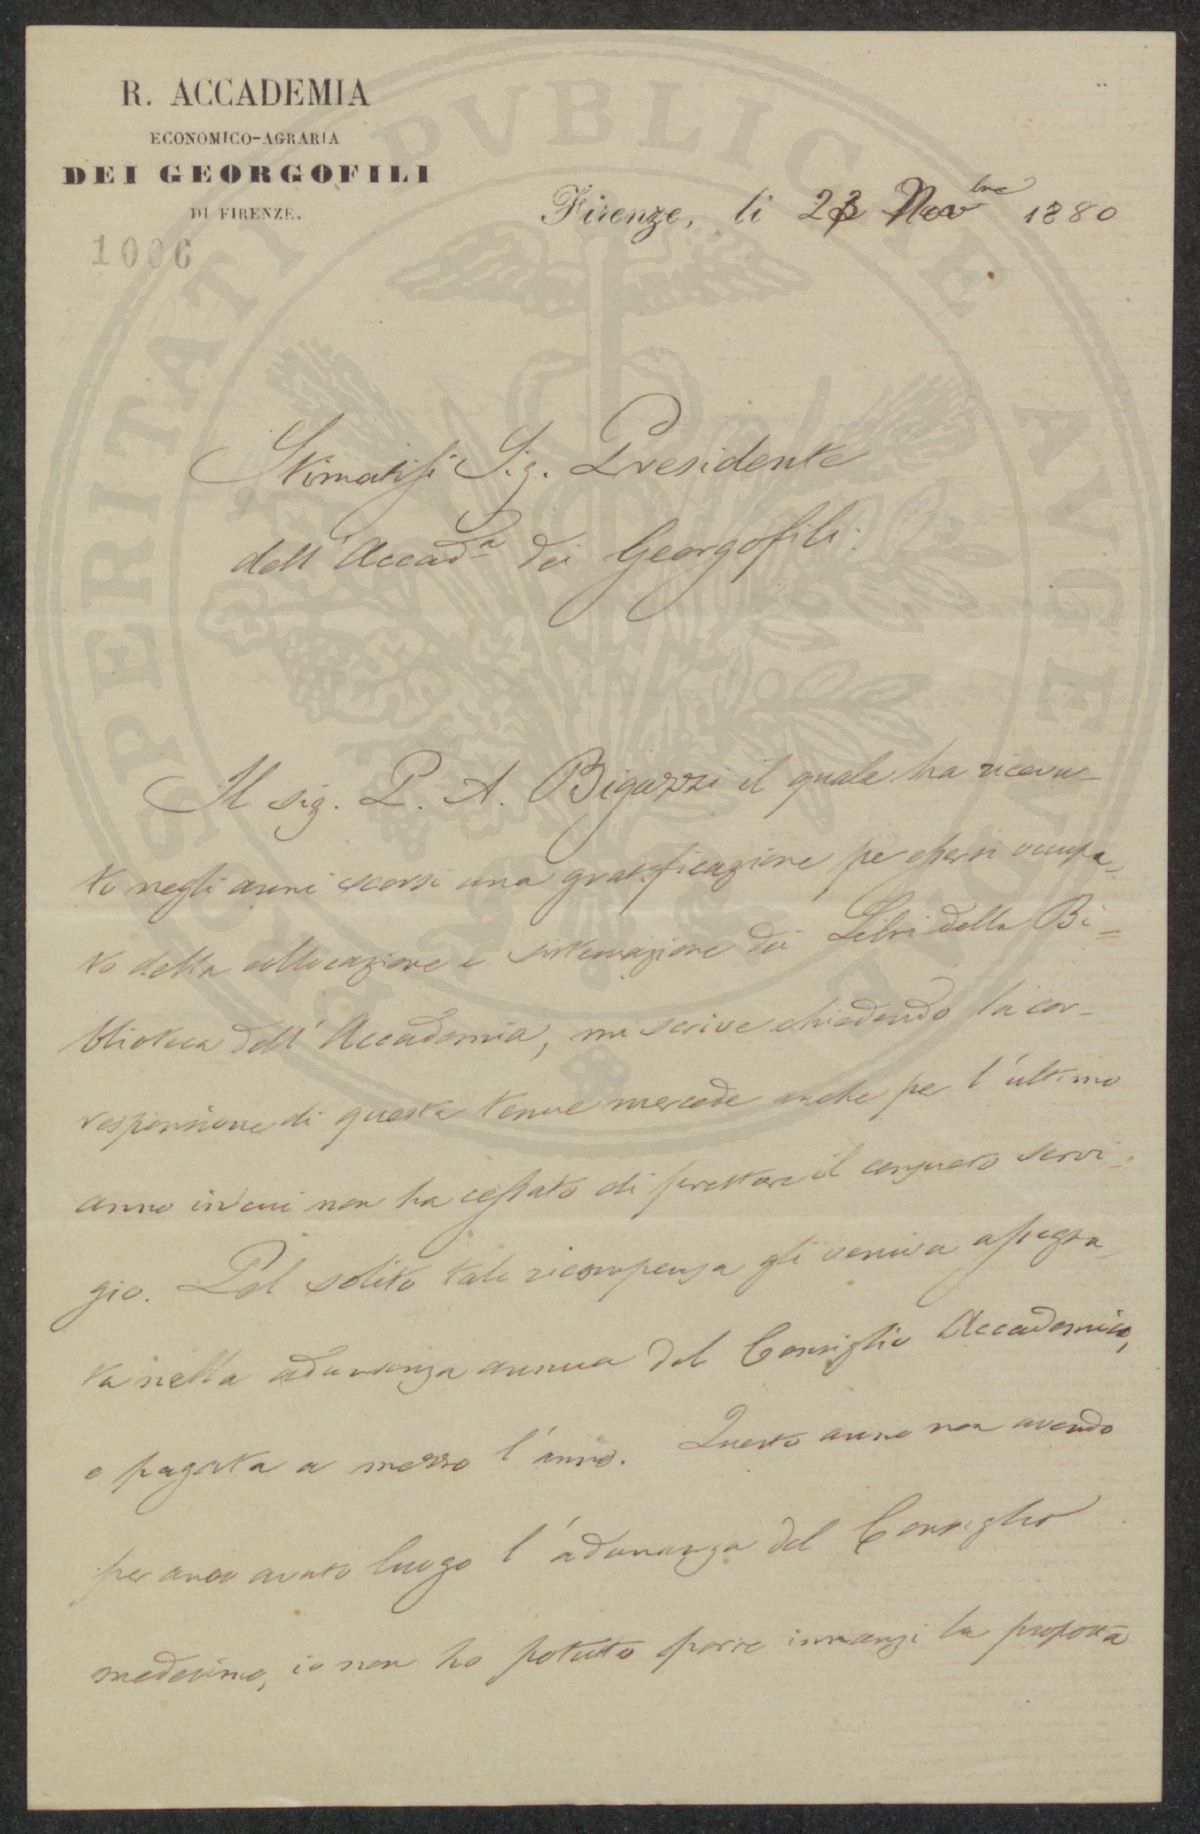 R. ACCADEMIA
ECONOMICO-AGRARIA
DEI GEORGOFILI
DI FIRENZE.
1006
Firenze, li 23 Novbre 1880
PROSPERITATI PVBLICAE AVGENDAE
Stimatiss. Sig. Presidente
dell'Accada dei Georgofili.
Il sig. P. A. Bigazzi il quale ha ricevu-
to negli anni scorsi una gratificazione per essersi occupa-
to della collocazione e sistemazione dei Libri della Bi=
blioteca dell'Accademia, mi scrive chiedendo la cor-
responsione di questa tenue mercede anche per l'ultimo
anno in cui non ha cessato di prestare il consueto servi-
gio. Pel solito tale ricompensa gli veniva assegna-
ta nella adunanza annua del Consiglio Accademico,
e pagata a mezzo l'anno. Questo anno non avendo
per anco avuto luogo l'adunanza del Consiglio
medesimo, io non ho potuto porre innanzi la proposta